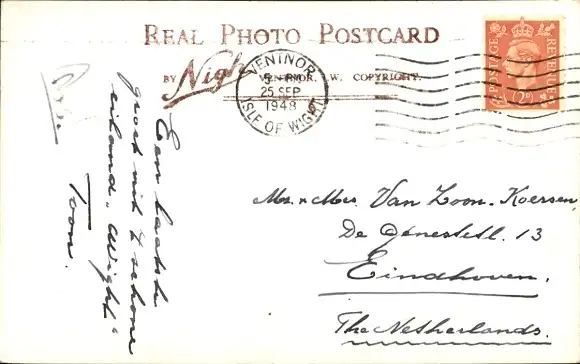 REAL PHOTO POSTCARD
BY Nigh VENTNOR, I.W. COPYRIGHT.
VENTNOR
25 SEP
1948
ISLE OF WIGHT
POSTAGE
REVENUE
2D
Een laatste
groet uit 't schone
eiland "Wight"
Toon.
Mr. & Mrs. Van Loon-Koersen,
De Genestetl. 13
Eindhoven.
The Netherlands.